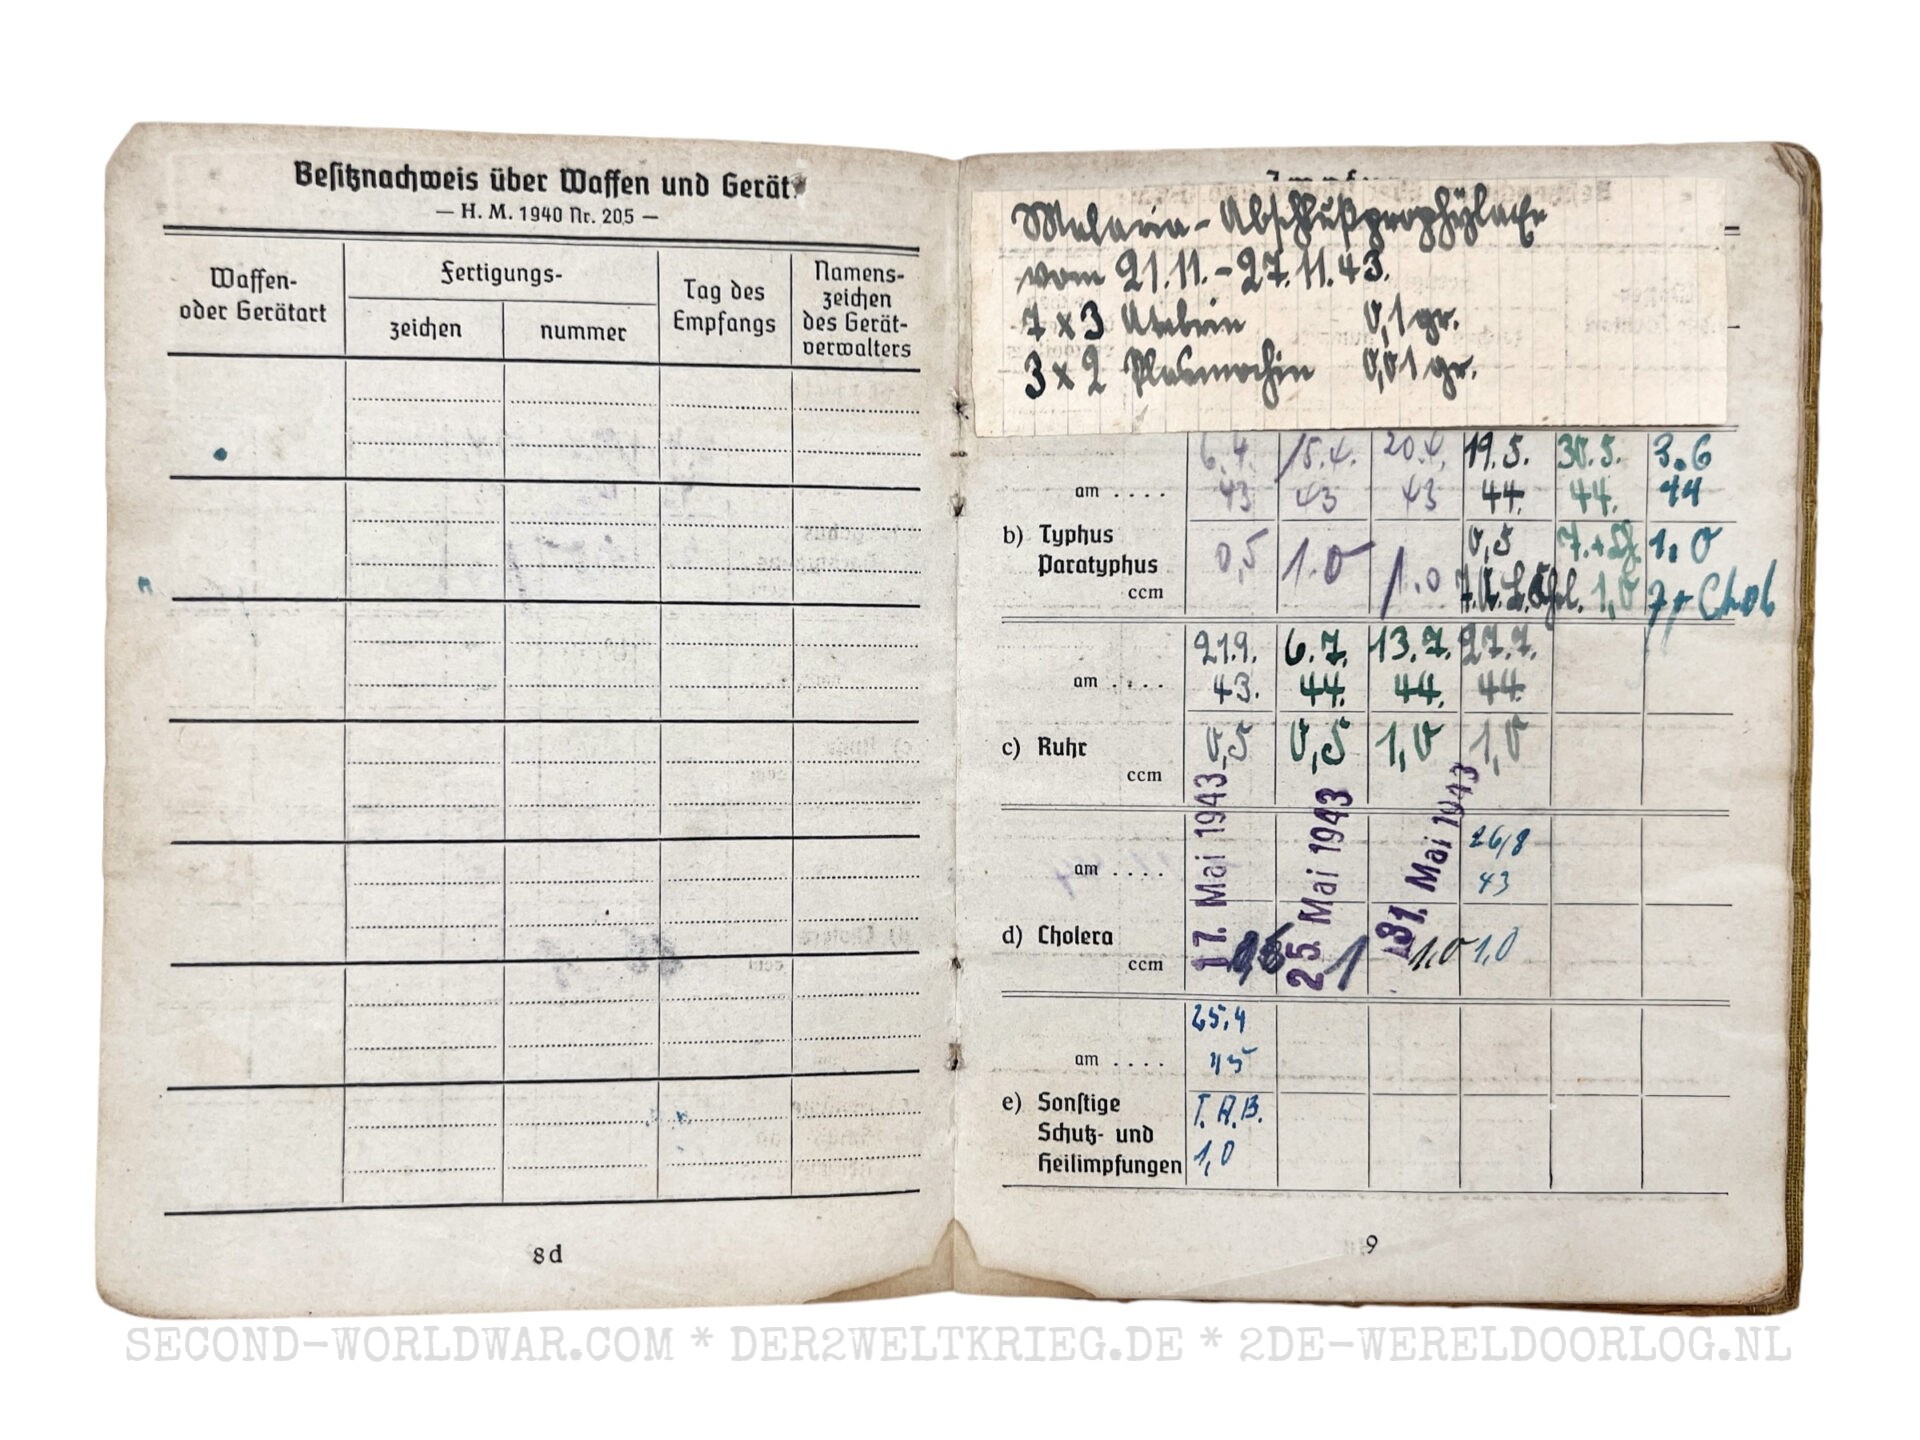 Besitznachweis über Waffen und Gerät
— H. M. 1940 Nr. 205 —
Waffen- oder Gerätart
Fertigungs-
zeichen
nummer
Tag des Empfangs
Namens-zeichen des Gerät-verwalters
8d
Malaria-Abschlußprophylaxe
vom 21.11.-27.11.43.
7 x 3 Atebrin 0,1 gr.
3 x 2 Plasmochin 0,01 gr.
6.4. 15.4. 20.4. 19.5. 30.5. 3.6
am . . . . 43 43 43 44. 44. 44
b) Typhus 0,5 1.0 1.0 0,5 1.0
Paratyphus 1,0
ccm
21.9. 6.7. 13.7. 27.7.
am . . . . 43. 44. 44. 44.
c) Ruhr 0,5 0,5 1,0 1,0
ccm
17. Mai 1943 25. Mai 1943 31. Mai 1943 26/8
am . . . . 43
d) Cholera
ccm 1 1,0 1,0
25.4
am . . . . 45
e) Sonstige T.A.B.
Schutz- und
Heilimpfungen 1,0
9
SECOND-WORLDWAR.COM * DER2WELTKRIEG.DE * 2DE-WERELDOORLOG.NL